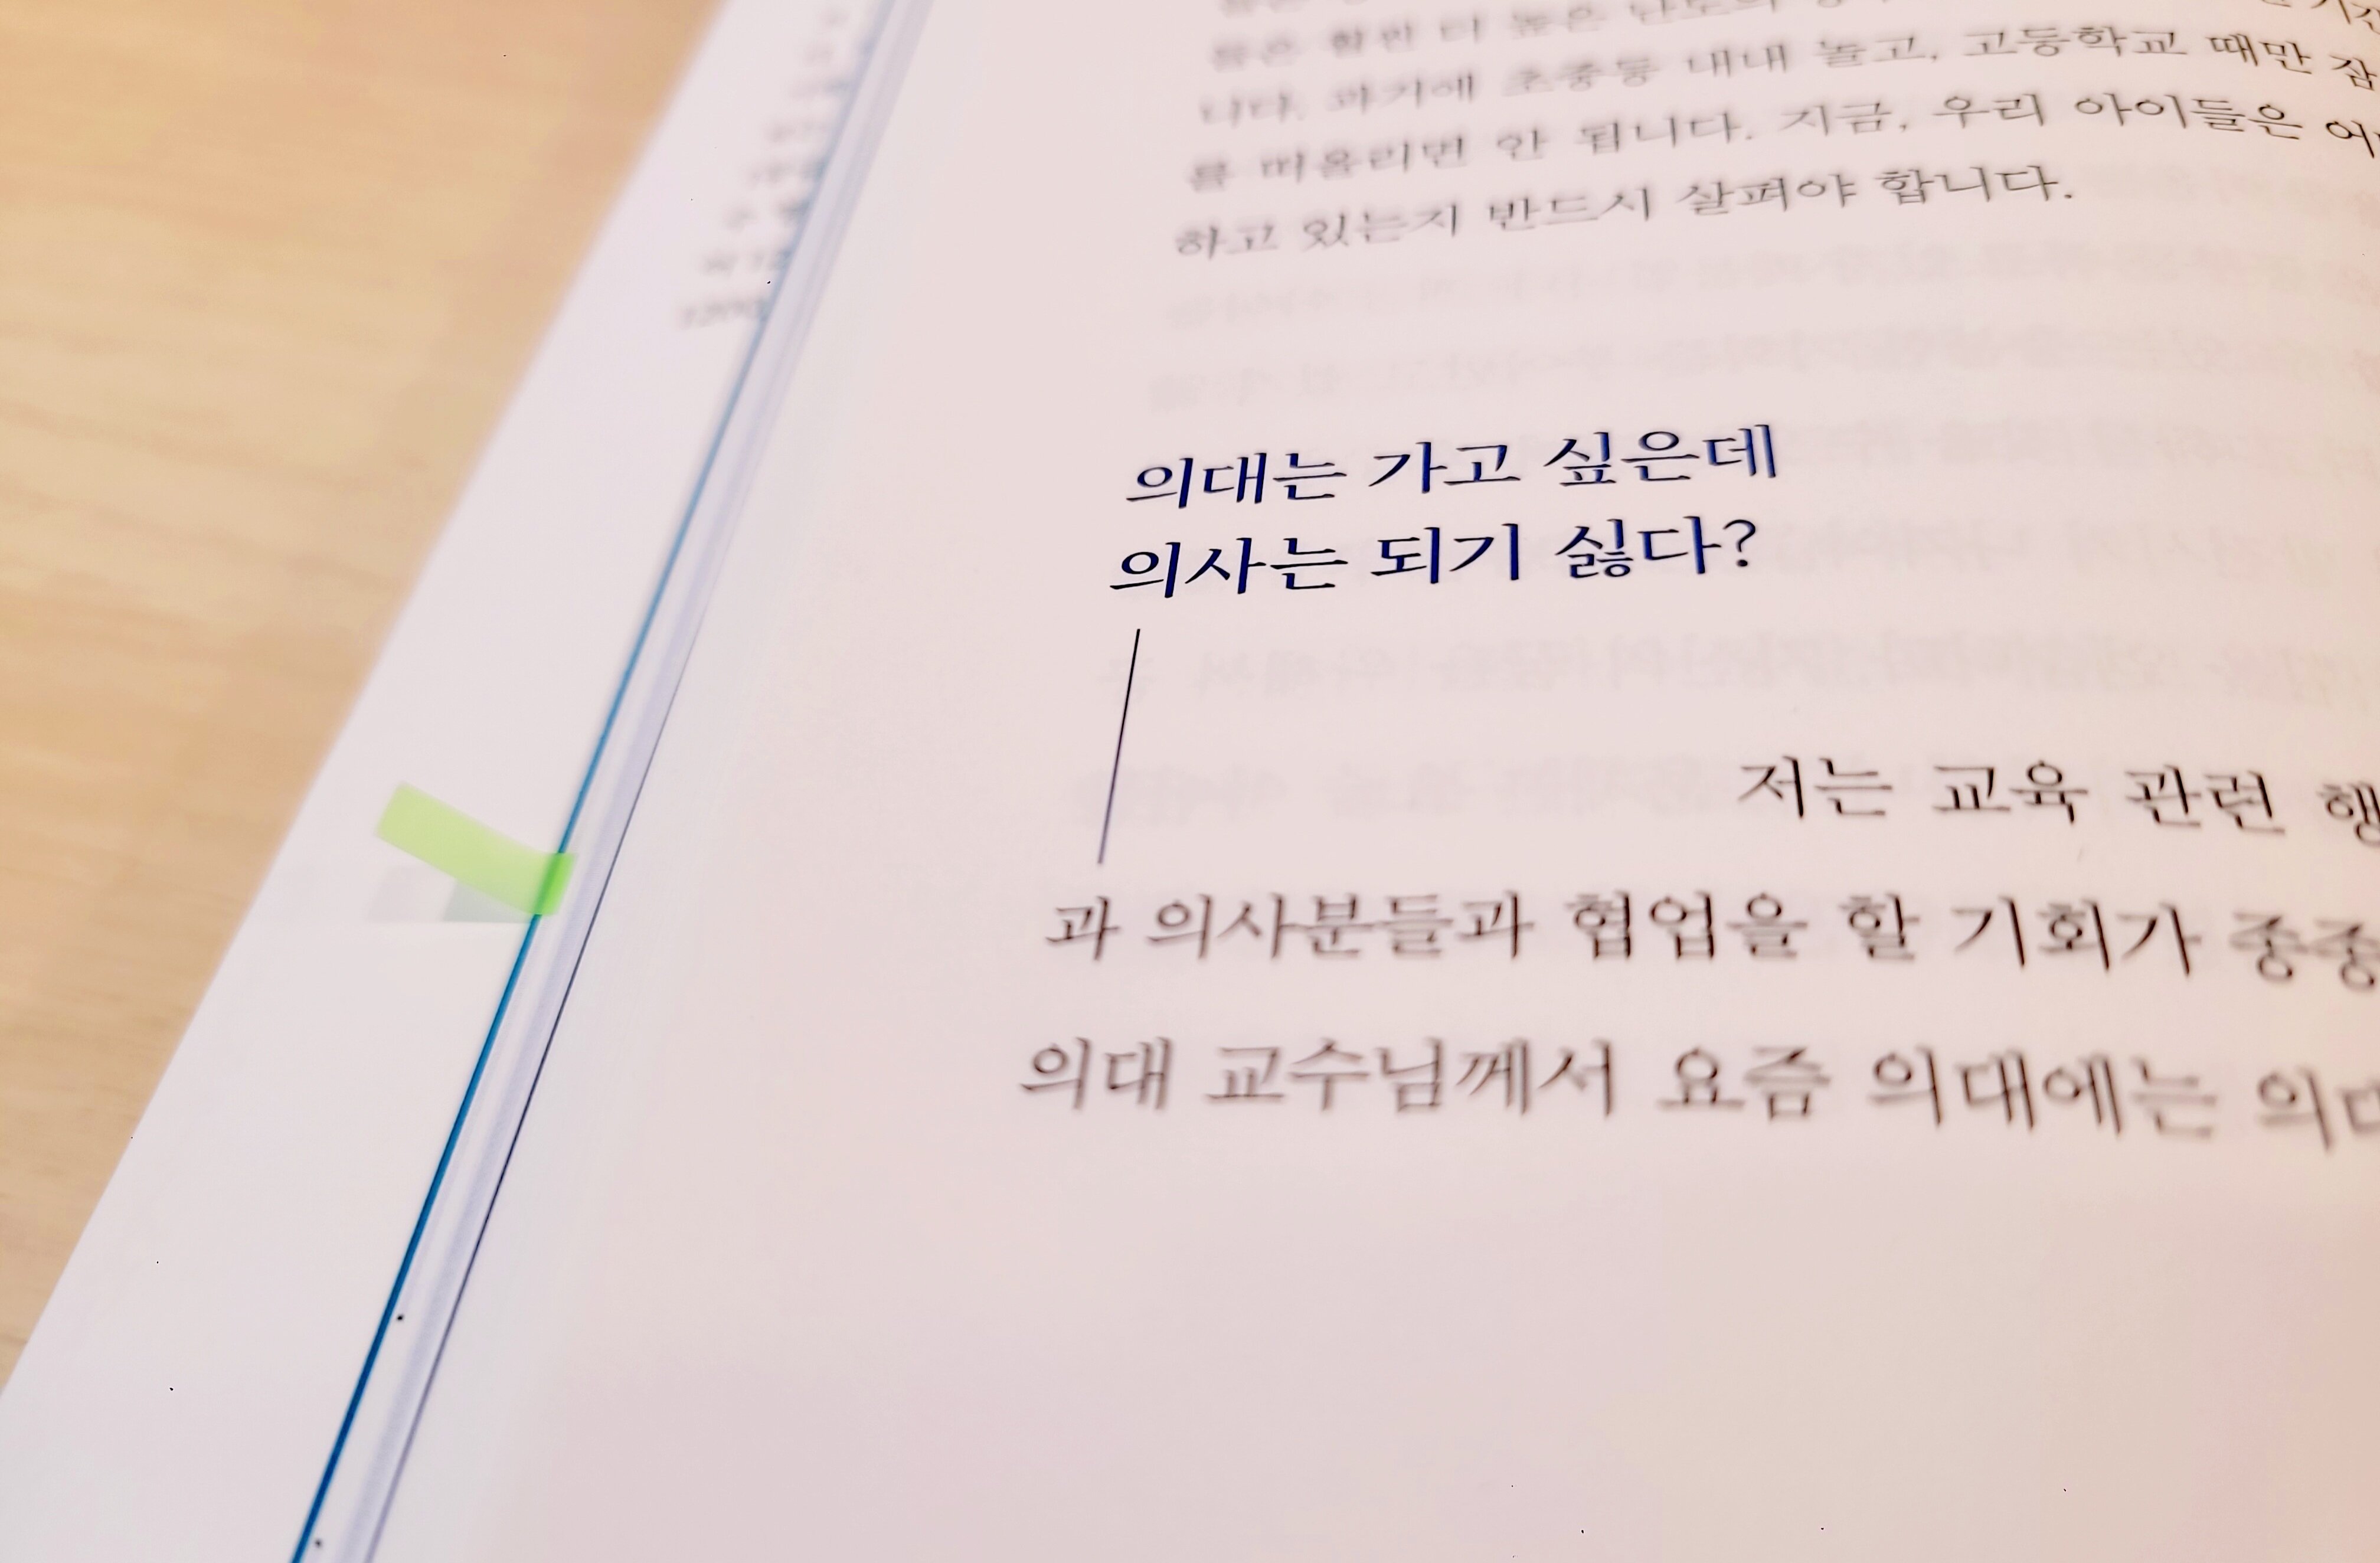 니다. 과거에 초중등 내내 놀고, 고등학교 때만
를 떠올리면 안 됩니다. 지금, 우리 아이들은
하고 있는지 반드시 살펴야 합니다.
의대는 가고 싶은데
의사는 되기 싫다?
저는 교육 관련
과 의사분들과 협업을 할 기회가 종종
의대 교수님께서 요즘 의대에는